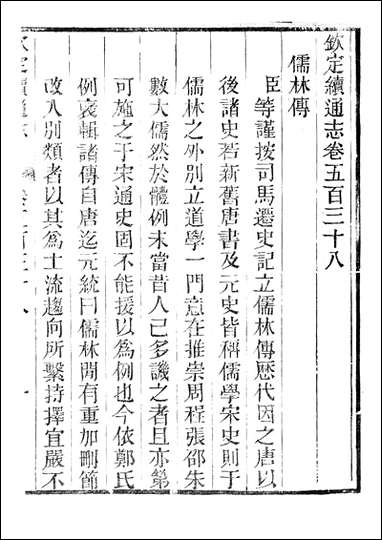 欽定續通志卷五百三十八
儒林傳
臣等謹按司馬遷史記立儒林傳歴代因之唐以
後諸史若新舊唐書及元史皆稱儒學宋史則于
儒林之外別立道學一門意在推崇周程張邵朱
數大儒然於體例未當昔人已多譏之者且亦第
可施之于宋通史固不能援以為例也今依鄭氏
例裒輯諸傳自唐迄元統曰儒林閒有重加刪節
改入別類者以其為士流趨向所繫持擇宜嚴不
欽定續通志